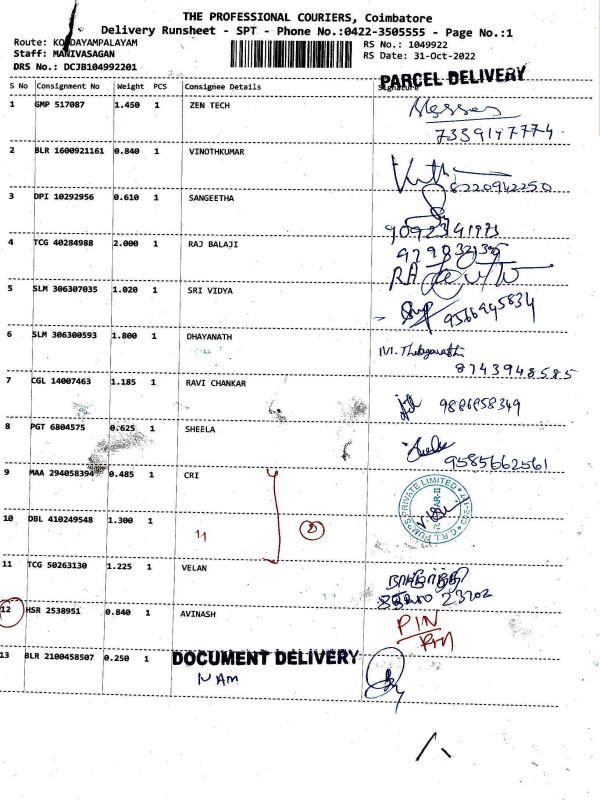 THE PROFESSIONAL COURIERS, Coimbatore
Delivery Runsheet - SPT - Phone No.:0422-3505555 - Page No.:1
Route: KONDAYAMPALAYAM
Staff: MANIVASAGAN
DRS No.: DCJB104992201
RS No.: 1049922
RS Date: 31-Oct-2022
PARCEL DELIVERY
S No Consignment No Weight PCS Consignee Details Signature
1 GMP 517087 1.450 1 ZEN TECH
7339147774
2 BLR 1600921161 0.840 1 VINOTHKUMAR
8220942250
3 DPI 10292956 0.610 1 SANGEETHA
9092341973
4 TCG 40284988 2.000 1 RAJ BALAJI
5 SLM 306307035 1.020 1 SRI VIDYA
9566945834
6 SLM 306300593 1.800 1 DHAYANATH
8743948585
7 CGL 14007463 1.185 1 RAVI CHANKAR
9886958349
8 PGT 6804575 0.625 1 SHEELA
9585662561
9 MAA 294058394 0.485 1 CRI
C.R.I. PUMPS PRIVATE LIMITED
10 DBL 410249548 1.300 1 11 2
11 TCG 50263130 1.225 1 VELAN
23202
12 HSR 2538951 0.840 1 AVINASH
PIN
13 BLR 2100458507 0.250 1 DOCUMENT DELIVERY
NAM